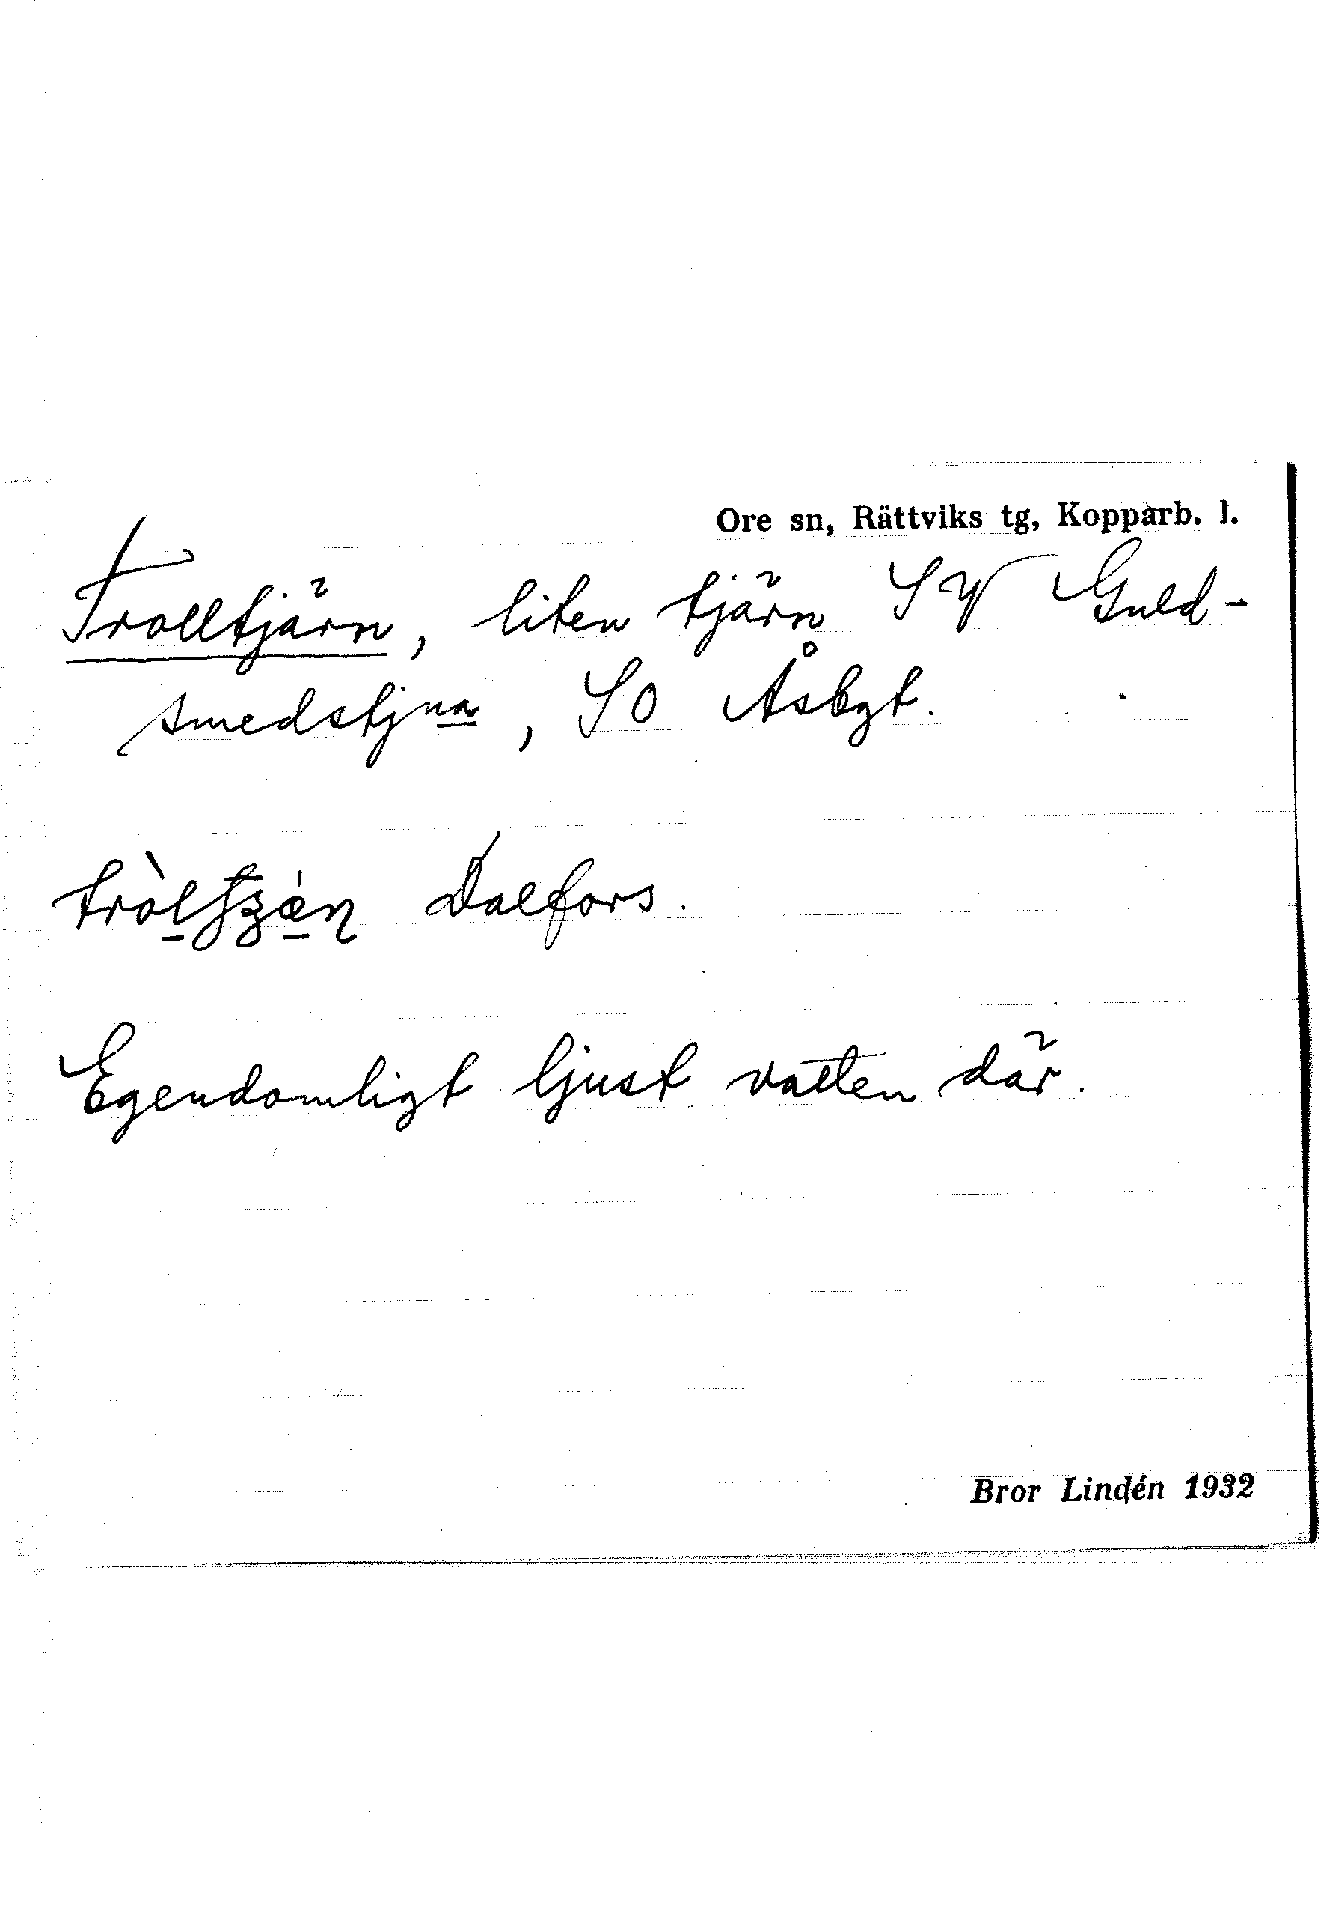 Ore sn, Rättviks tg, Kopparb. l.
Trolltjärn, liten tjärn SV Guld-
smedstjna, SO Åsbgt.
Dalfors.
Egendomligt ljust vatten där.
Bror Lindén 1932